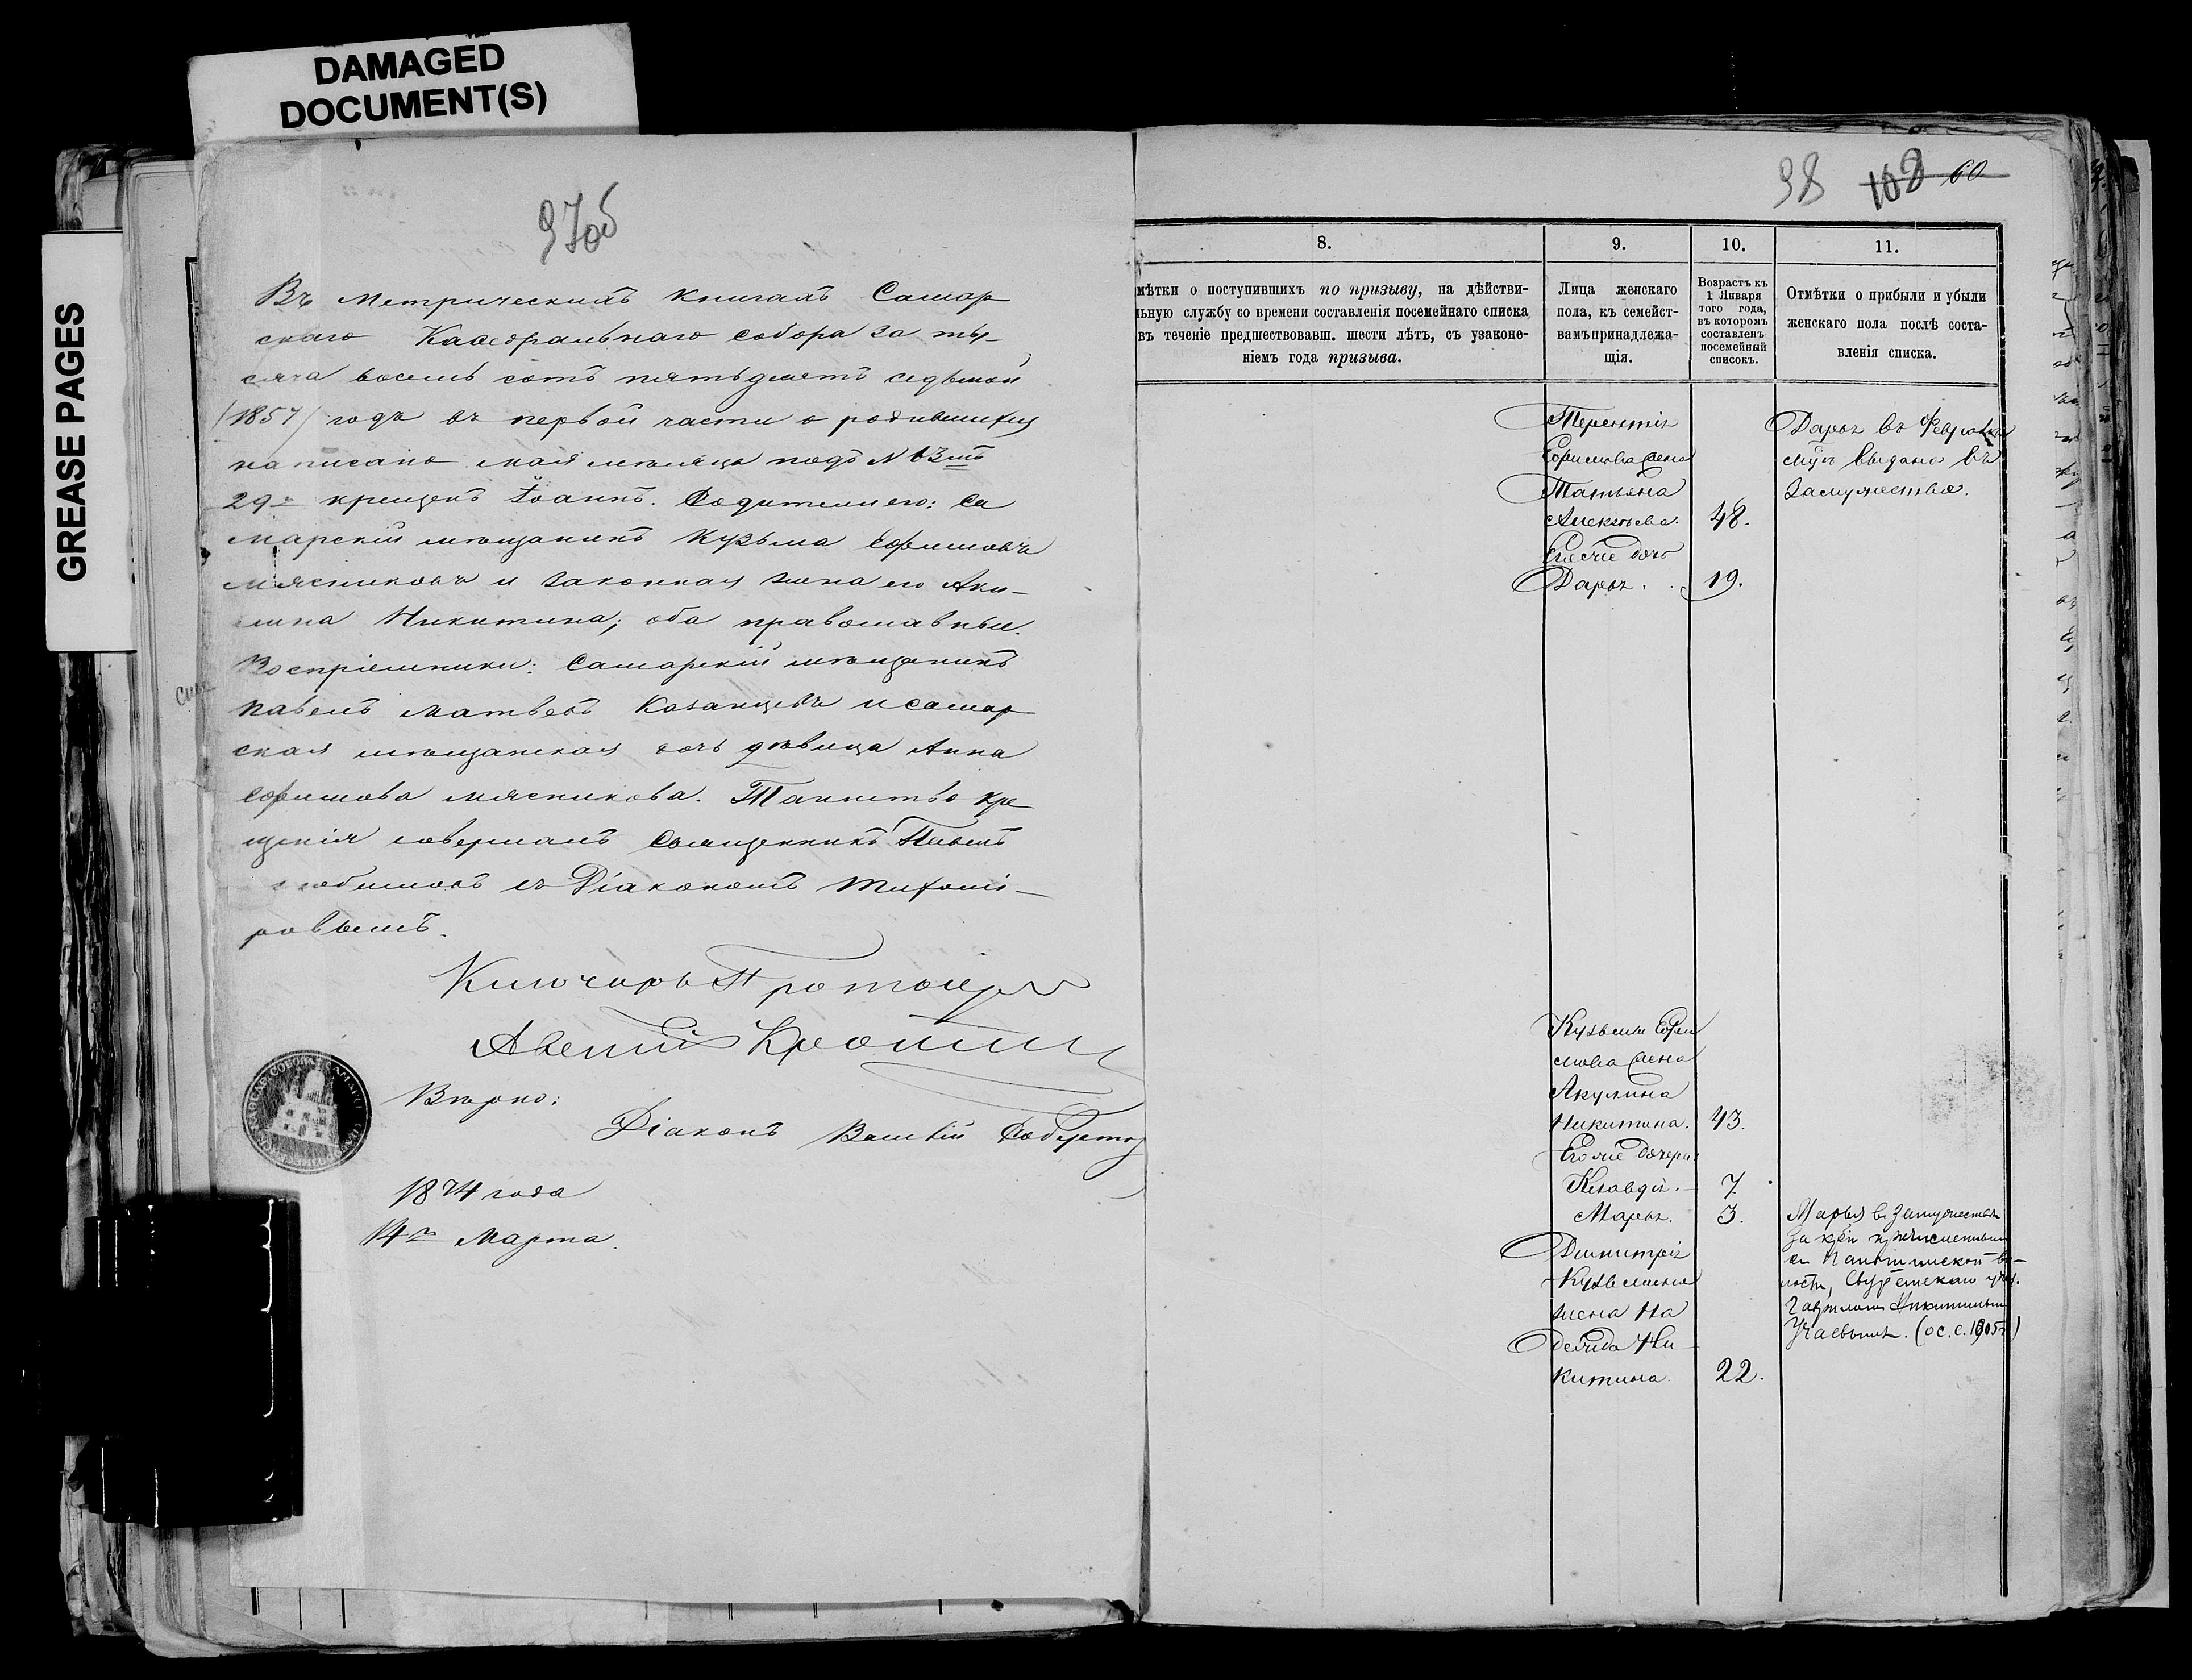 DAMAGED
DOCUMENT(S)
GREASE PAGES
97об
Въ Метрическихъ книгахъ Самар
скаго Каѳедральнаго собора за ты-
сяча восемь сотъ пятьдесятъ седьмой
/1857/ годъ въ первой части о родившихся
написано: мая мѣсяца подъ № 63мъ
29го крещенъ Іоаннъ. Родители его: Са
марскій мѣщанинъ Кузьма Ефимовъ
Мясниковъ и законная жена его Аку-
лина Никитина; оба православные.
Воспріемники: Самарскій мѣщанинъ
Павелъ Матвеевъ Казанцевъ и самар
ская мѣщанская дочь дѣвица Анна
Ефимова Мясникова. Таинство кре
щенія совершалъ Священникъ Павелъ
съ Діакономъ Тихоми-
ровымъ.
Ключарь Протоіерей
Вѣрно:
Діаконъ Василій
1874 года
14го Марта.
98 108 60
8. 9. 10. 11.
мѣтки о поступившихъ по призыву, на дѣйстви-
льную службу со времени составленія посемейнаго списка
въ теченіе предшествовавш. шести лѣтъ, съ узаконе-
ніемъ года призыва.
Лица женскаго
пола, къ семейст-
вамъ принадлежа-
щія.
Возрастъ къ
1 Января
того года,
въ которомъ
составленъ
посемейный
списокъ.
Отмѣтки о прибыли и убыли
женскаго пола послѣ соста-
вленія списка.
Терентія
Ефимова жена
Татьяна
Алексѣева. 48.
Его же дочь
Дарья. 19.
Дарья въ
выдана въ
замужество.
Кузьмы Ефи
мова жена
Акулина
Никитина. 43.
Его же дочери
Клавдія. 7.
Марья. 3.
Димитрія
Кузьмина
жена На
дежда Ни
китина. 22.
Марья въ замужествѣ
за
(ос. с. 1905г.)